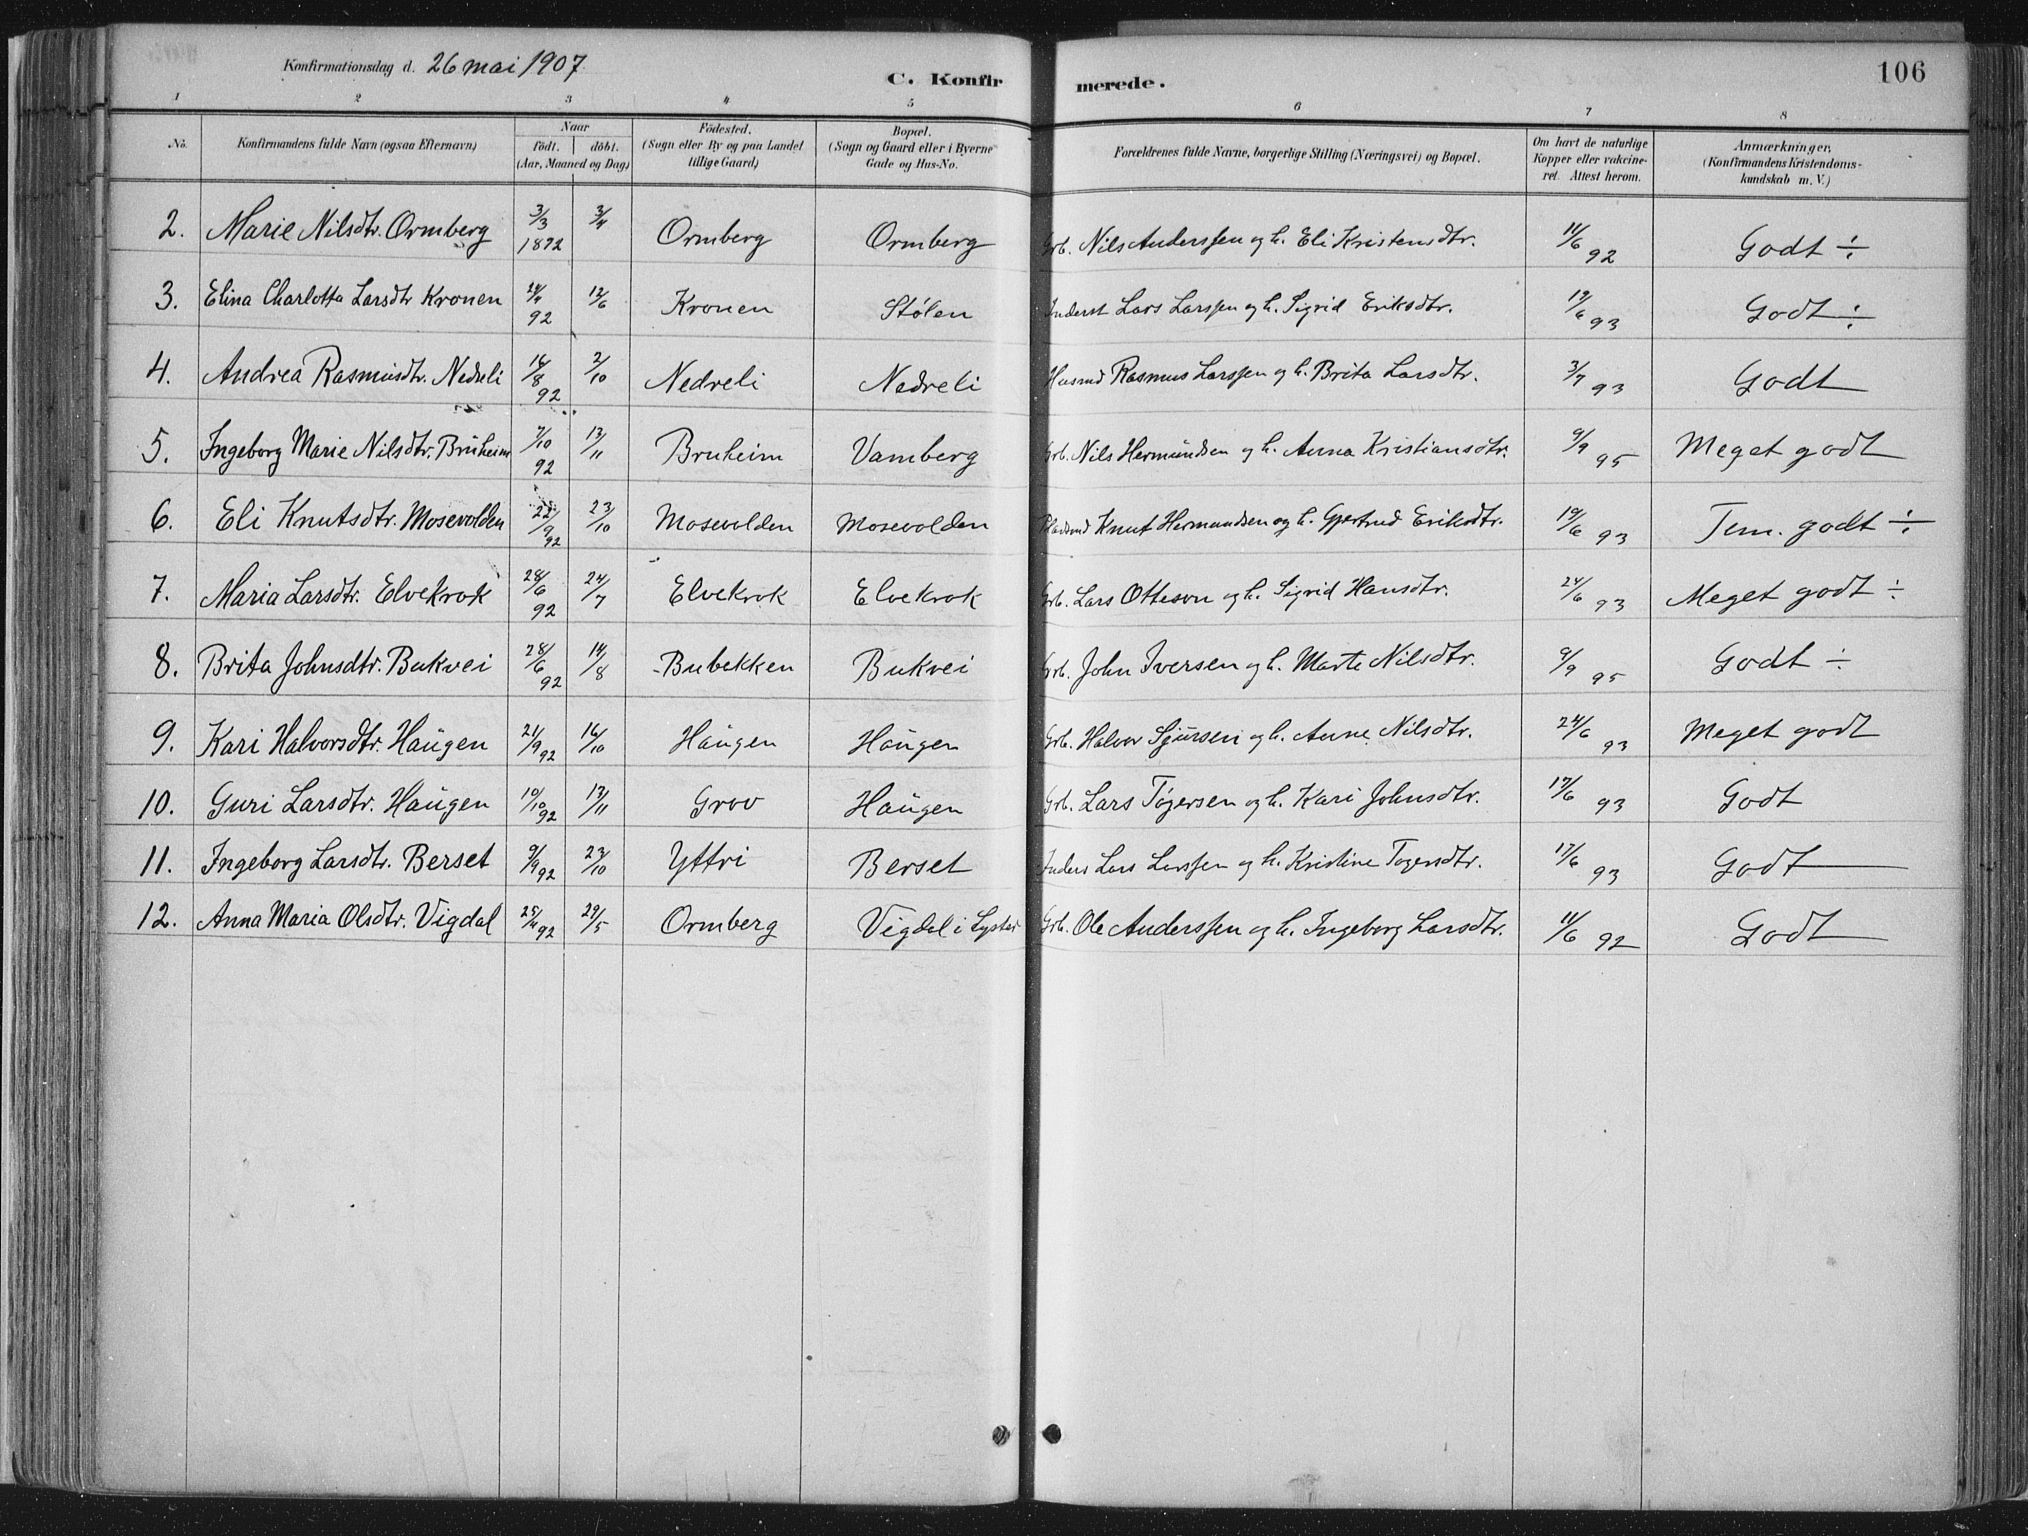 Konfirmationsdag d. 26 mai 1907
C. Konfirmerede.
106
1 2 3 4 5 6 7 8
No. Konfirmandens fulde Navn (ogsaa Efternavn) Naar födt. döbt. (Aar, Maaned og Dag) Födested. (Sogn eller By og paa Landet tillige Gaard) Bopæl. (Sogn og Gaard eller i Byerne Gade og Hus-No. Forældrenes fulde Navne, borgerlige Stilling (Næringsvei) og Bopæl. Om havt de naturlige Kopper eller vakcineret. Attest herom. Anmærkninger. (Konfirmandens Kristendomskundskab m. V.)
2. Marie Nilsdtr. Ormberg 3/3 1892 3/4 Ormberg Ormberg Grb. Nils Anderssen og h. Eli Kristensdtr. 11/6 92 Godt ÷
3. Elina Charlotta Larsdtr Kronen 24/4 92 12/6 Kronen Stølen Inderst Lars Larssen og h. Sigrid Eriksdtr. 19/6 93 Godt ÷
4. Andrea Rasmusdtr. Nedreli 16/8 92 2/10 Nedreli Nedreli Husmd Rasmus Larssen og h. Brita Larsdtr. 3/7 93 Godt
5. Ingeborg Marie Nilsdtr. Bruheim 7/10 92 13/11 Bruheim Vamberg Grb. Nils Hermundsen og h. Anna Kristiansdtr. 9/9 95 Meget godt
6. Eli Knutsdtr. Mosevolden 22/9 92 23/10 Mosevolden Mosevolden Pladsmd Knut Hermundsen og h. Gjertrud Eriksdtr. 19/6 93 Tem. godt ÷
7. Maria Larsdtr. Elvekrok 28/6 92 24/7 Elvekrok Elvekrok Grb. Lars Otteson og h. Sigrid Hansdtr. 24/6 93 Meget godt ÷
8. Brita Johnsdtr. Bukvei 28/6 92 14/8 Bubekken Bukvei Grb. John Iversen og h. Marte Nilsdtr. 9/9 95 Godt ÷
9. Kari Halvorsdtr. Haugen 21/9 92 16/10 Haugen Haugen Grb. Halvor Sjursen og h. Anne Nilsdtr. 24/6 93 Meget godt
10. Guri Larsdtr. Haugen 10/10 92 13/11 Grov Haugen Grb. Lars Tøgersen og h. Kari Johnsdtr. 17/6 93 Godt
11. Ingeborg Larsdtr. Berset 9/9 92 23/10 Yttri Berset Inders Lars Larssen og h. Kristine Togersdtr. 17/6 93 Godt
12. Anna Maria Olsdtr. Vigdal 25/4 92 29/5 Ormberg Vigdal i Lyster Grb. Ole Anderssen og h. Ingeborg Larsdtr. 11/6 92 Godt